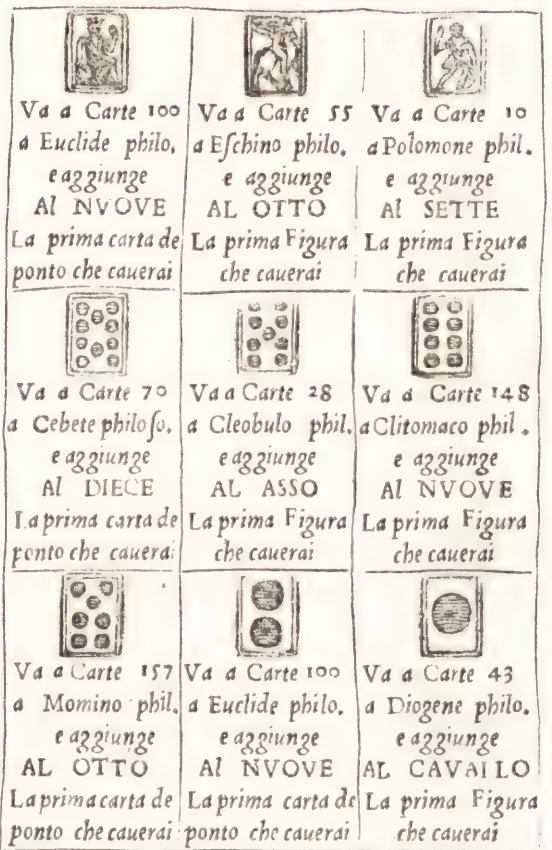 Va a Carte 100
a Euclide philo.
e aggiunge
Al NVOVE
La prima carta de
ponto che cauerai
Va a Carte 55
a Eſchino philo.
e aggiunge
AL OTTO
La prima Figura
che cauerai
Va a Carte 10
a Polomone phil.
e aggiunge
Al SETTE
La prima Figura
che cauerai
Va a Carte 70
a Cebete philoſo.
e aggiunge
Al DIECE
La prima carta de
ponto che cauerai
Va a Carte 28
a Cleobulo phil.
e aggiunge
AL ASSO
La prima Figura
che cauerai
Va a Carte 148
a Clitomaco phil.
e aggiunge
Al NVOVE
La prima Figura
che cauerai
Va a Carte 157
a Momino phil.
e aggiunge
AL OTTO
La prima carta de
ponto che cauerai
Va a Carte 100
a Euclide philo.
e aggiunge
Al NVOVE
La prima carta de
ponto che cauerai
Va a Carte 43
a Diogene philo.
e aggiunge
AL CAVALLO
La prima Figura
che cauerai